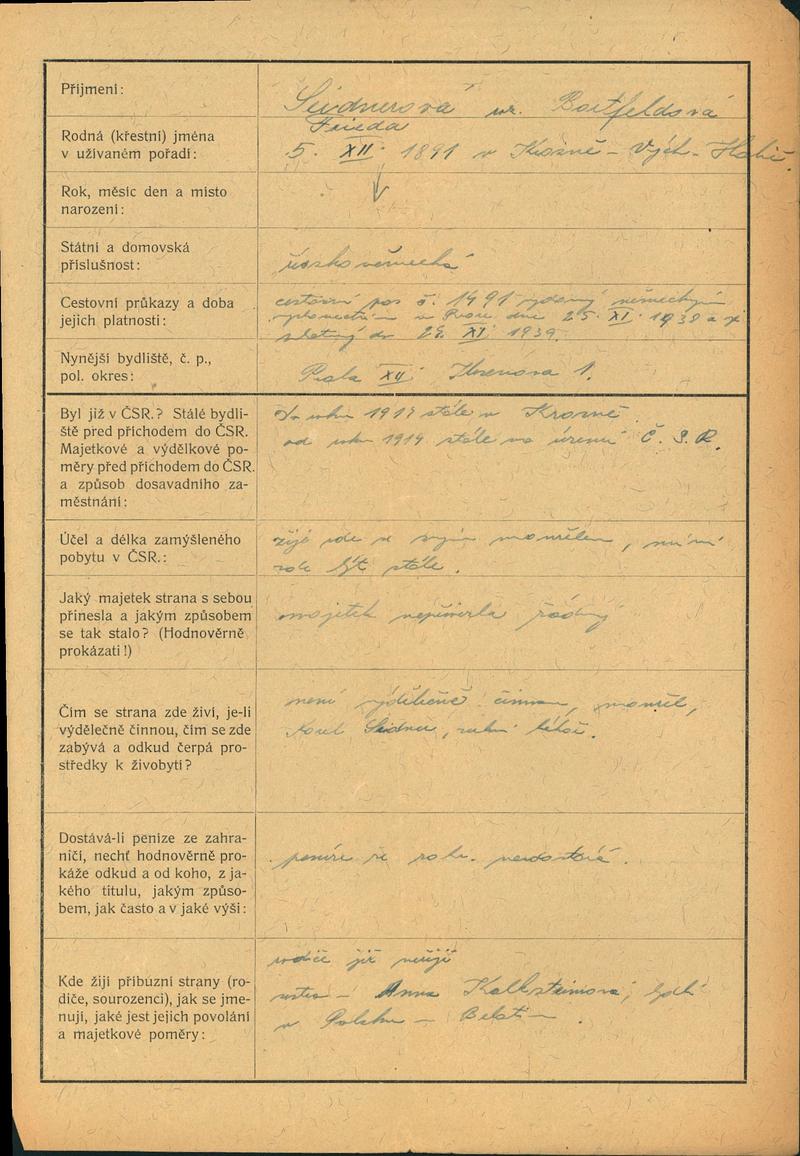 Příjmení:
Seidnerová roz. Bortfeldová
Rodná (křestní) jména
v užívaném pořadí:
Frieda
5. XII. 1891 v Krosně - Vých. Halič.
Rok, měsíc den a místo
narození:
Státní a domovská
příslušnost:
Cestovní průkazy a doba
jejich platnosti:
cestovní pas č. 1491 vydaný německým
v Praze dne 25. XI. 1938 a je
platný do 29. XI. 1939.
Nynější bydliště, č. p.,
pol. okres:
Praha XII 1.
Byl již v ČSR.? Stálé bydli-
ště před příchodem do ČSR.
Majetkové a výdělkové po-
měry před příchodem do ČSR.
a způsob dosavadního za-
městnání:
Do roku stále v Krosně.
od roku 1919 stále na území Č. S. R.
Účel a délka zamýšleného
pobytu v ČSR.:
žije zde se svým manželem,
zde být stále.
Jaký majetek strana s sebou
přinesla a jakým způsobem
se tak stalo? (Hodnověrně
prokázati!)
majetek nepřivezla žádný
Čím se strana zde živí, je-li
výdělečně činnou, čím se zde
zabývá a odkud čerpá pro-
středky k živobytí?
není výdělečně činnou, manžel,
Karel Seidner, zubní lékař.
Dostává-li peníze ze zahra-
ničí, nechť hodnověrně pro-
káže odkud a od koho, z ja-
kého titulu, jakým způso-
bem, jak často a v jaké výši:
peníze ze zahr. nedostává.
Kde žijí příbuzní strany (ro-
diče, sourozenci), jak se jme-
nují, jaké jest jejich povolání
a majetkové poměry:
rodiče již nežijí
sestra - Anna Kalksteinová,
v Polsku -